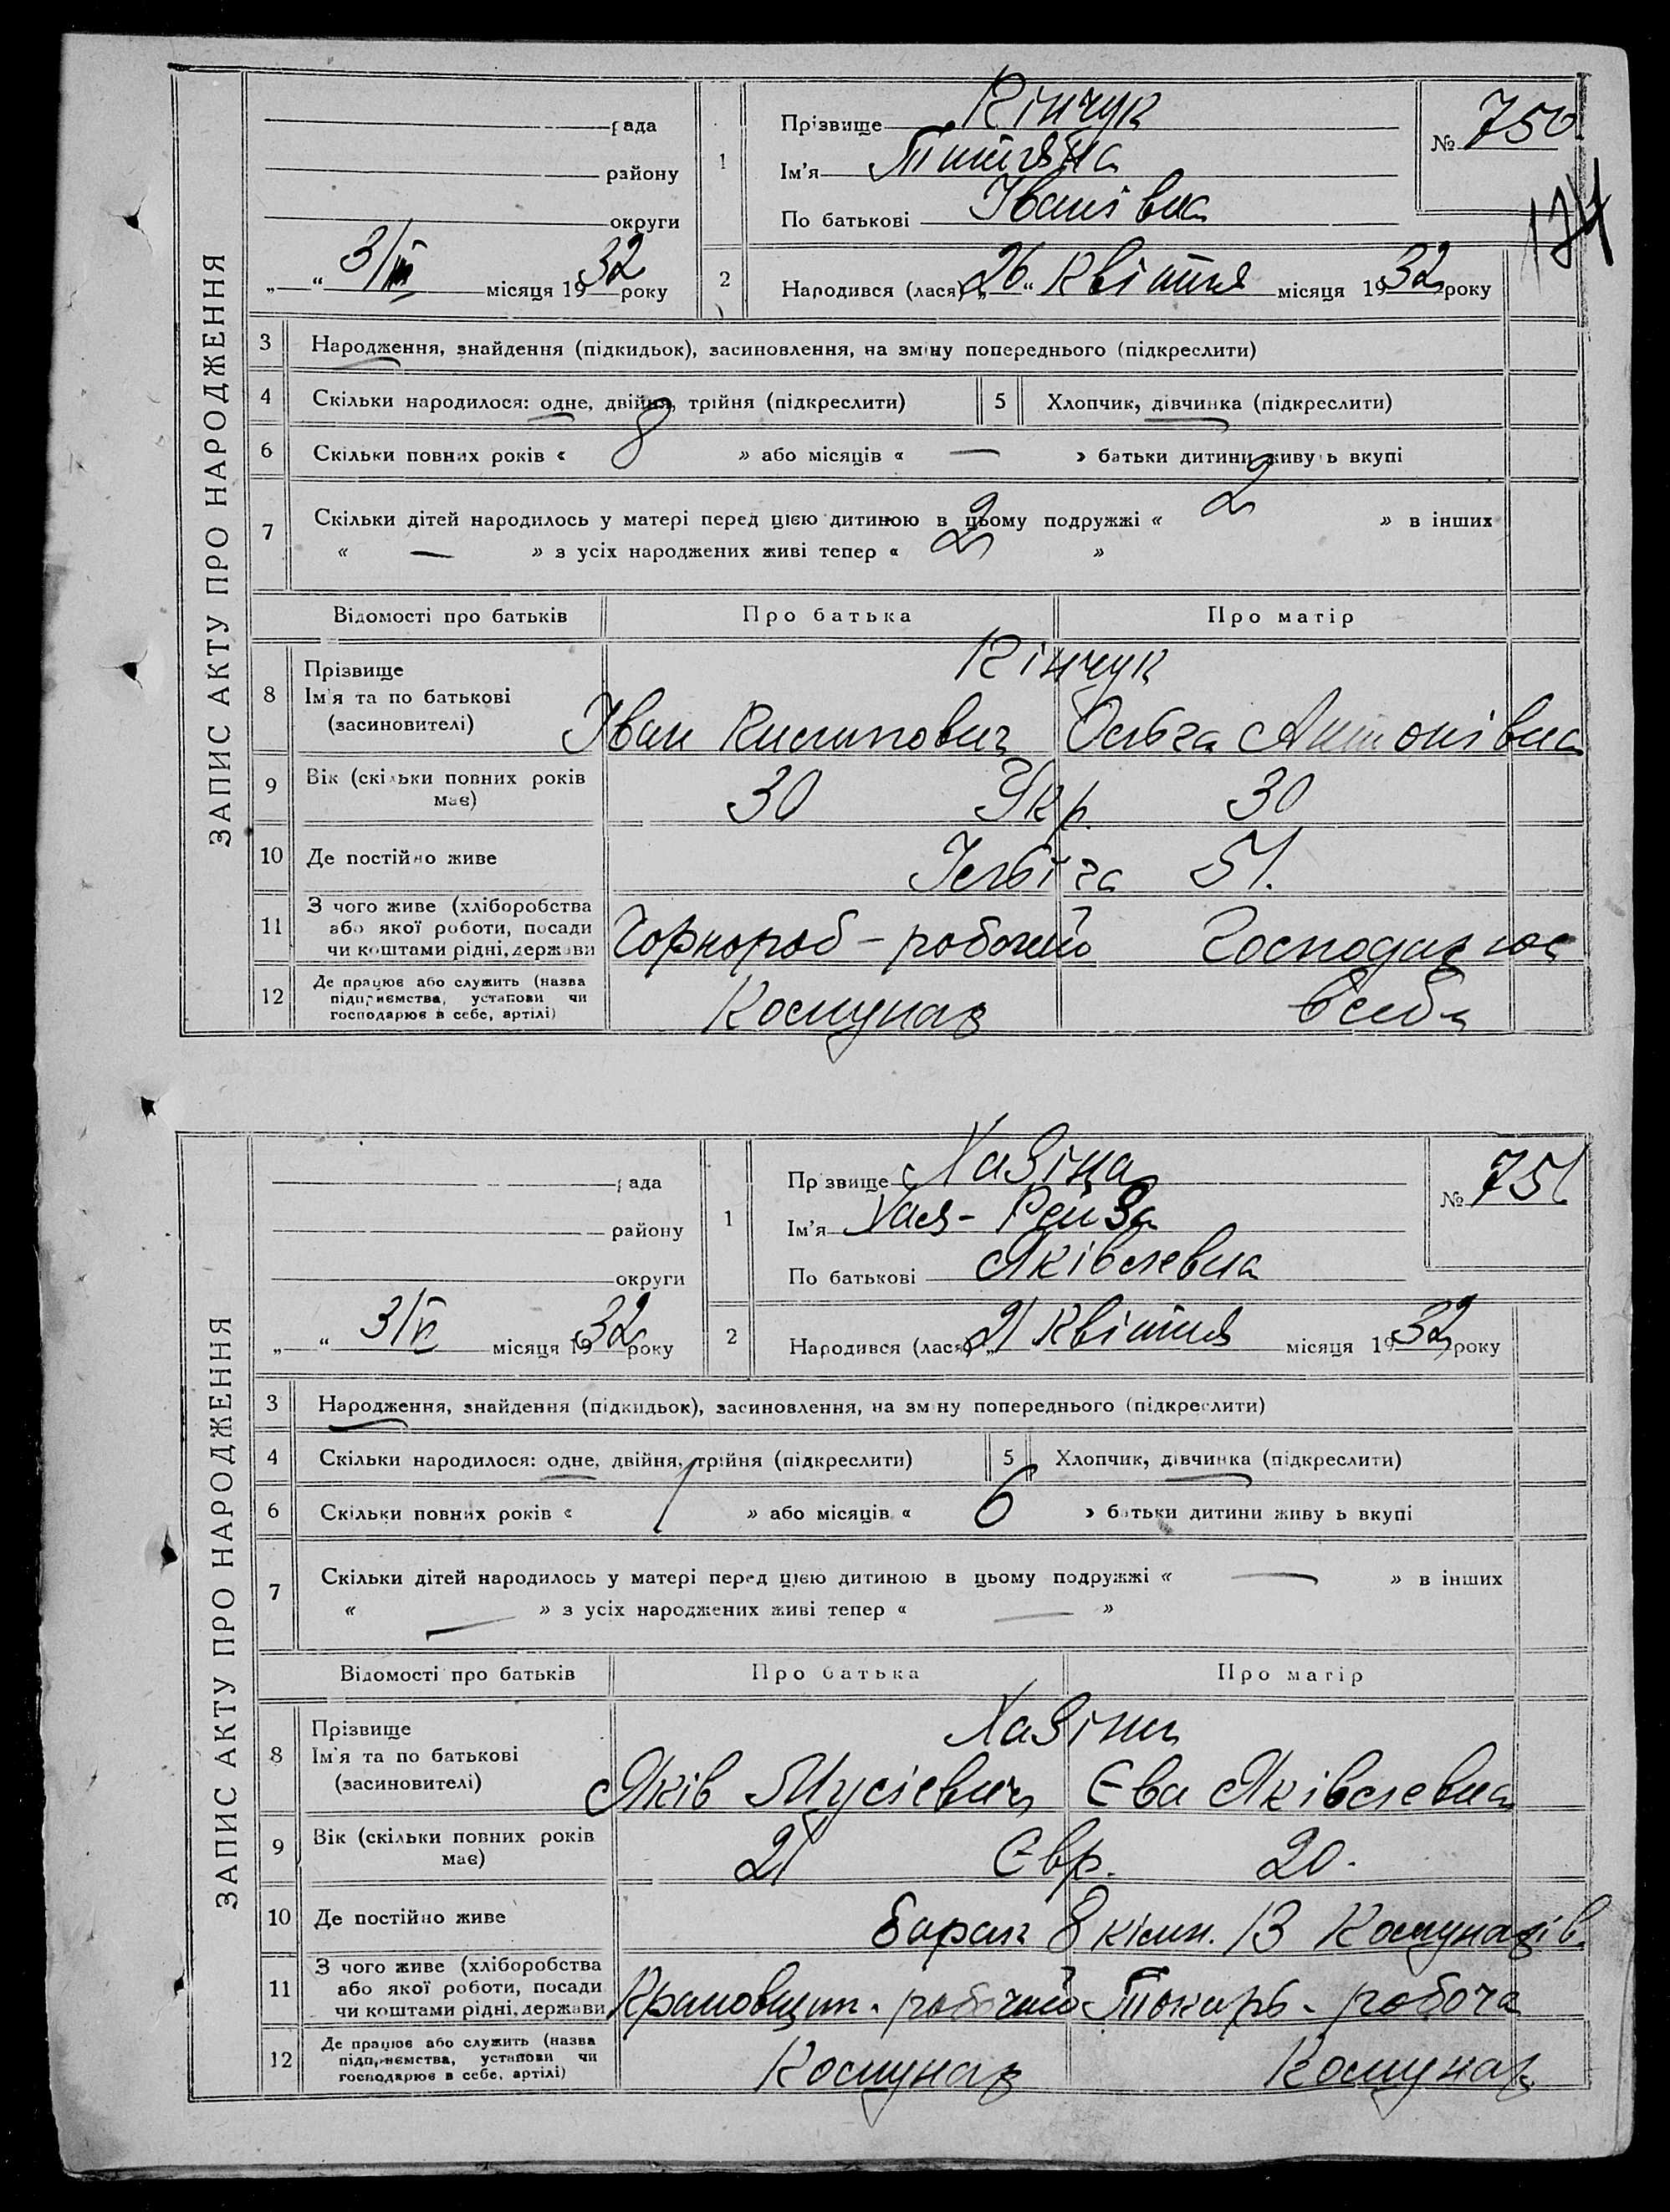 ЗАПИС АКТУ ПРО НАРОДЖЕННЯ
рада
району
округи
„ “ 3/VI місяця 1932 року
1
Прізвище Кінчук
Ім'я Тітяна
По батькові Іванівна
№ 750
174
2
Народився (лася) „26“ Квітня місяця 1932 року
3 Народження, знайдення (підкидьок), засиновлення, на зміну попереднього (підкреслити)
4 Скільки народилося: одне, двійня, трійня (підкреслити)
5 Хлопчик, дівчинка (підкреслити)
6 Скільки повних років « 8 » або місяців « — » батьки дитини живуть вкупі
7 Скільки дітей народилось у матері перед цією дитиною в цьому подружжі « 2 » в інших
« — » з усіх народжених живі тепер « 2 »
Відомості про батьків Про батька Про матір
8 Прізвище Кінчук
Ім'я та по батькові
(засиновителі) Іван Антонівна
9 Вік (скільки повних років має) 30 Укр. 30
10 Де постійно живе 51.
11 З чого живе (хліборобства
або якої роботи, посади
чи коштами рідні, держави Чорнороб - робочий
12 Де працює або служить (назва
підприємства, установи чи
господарює в себе, артілі) Комунар
ЗАПИС АКТУ ПРО НАРОДЖЕННЯ
рада
району
округи
„ “ 3/VI місяця 1932 року
1
Прізвище Хазіна
Ім'я Хая - Рейза
По батькові Яківлевна
№ 751
2
Народився (лася) „21 Квітня місяця 1932 року
3 Народження, знайдення (підкидьок), засиновлення, на зміну попереднього (підкреслити)
4 Скільки народилося: одне, двійня, трійня (підкреслити)
5 Хлопчик, дівчинка (підкреслити)
6 Скільки повних років « 1 » або місяців « 6 » батьки дитини живуть вкупі
7 Скільки дітей народилось у матері перед цією дитиною в цьому подружжі « — » в інших
« — » з усіх народжених живі тепер « — »
Відомості про батьків Про батька Про матір
8 Прізвище Хазіни
Ім'я та по батькові
(засиновителі) Яків Мусієвич Єва Яківлевна
9 Вік (скільки повних років має) 21 Євр. 20.
10 Де постійно живе барак 8 кімн. 13 Комунарів.
11 З чого живе (хліборобства
або якої роботи, посади
чи коштами рідні, держави Крановщик - робочий Токарь - робоча
12 Де працює або служить (назва
підприємства, установи чи
господарює в себе, артілі) Комунар Комунар